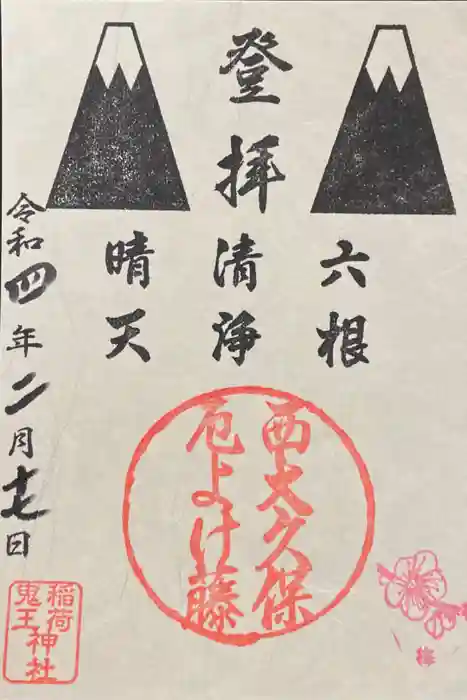 登拝
六根
清浄
晴天
西大久保
厄よけ藤
令和四年二月十七日
稲荷
鬼王
神社
梅